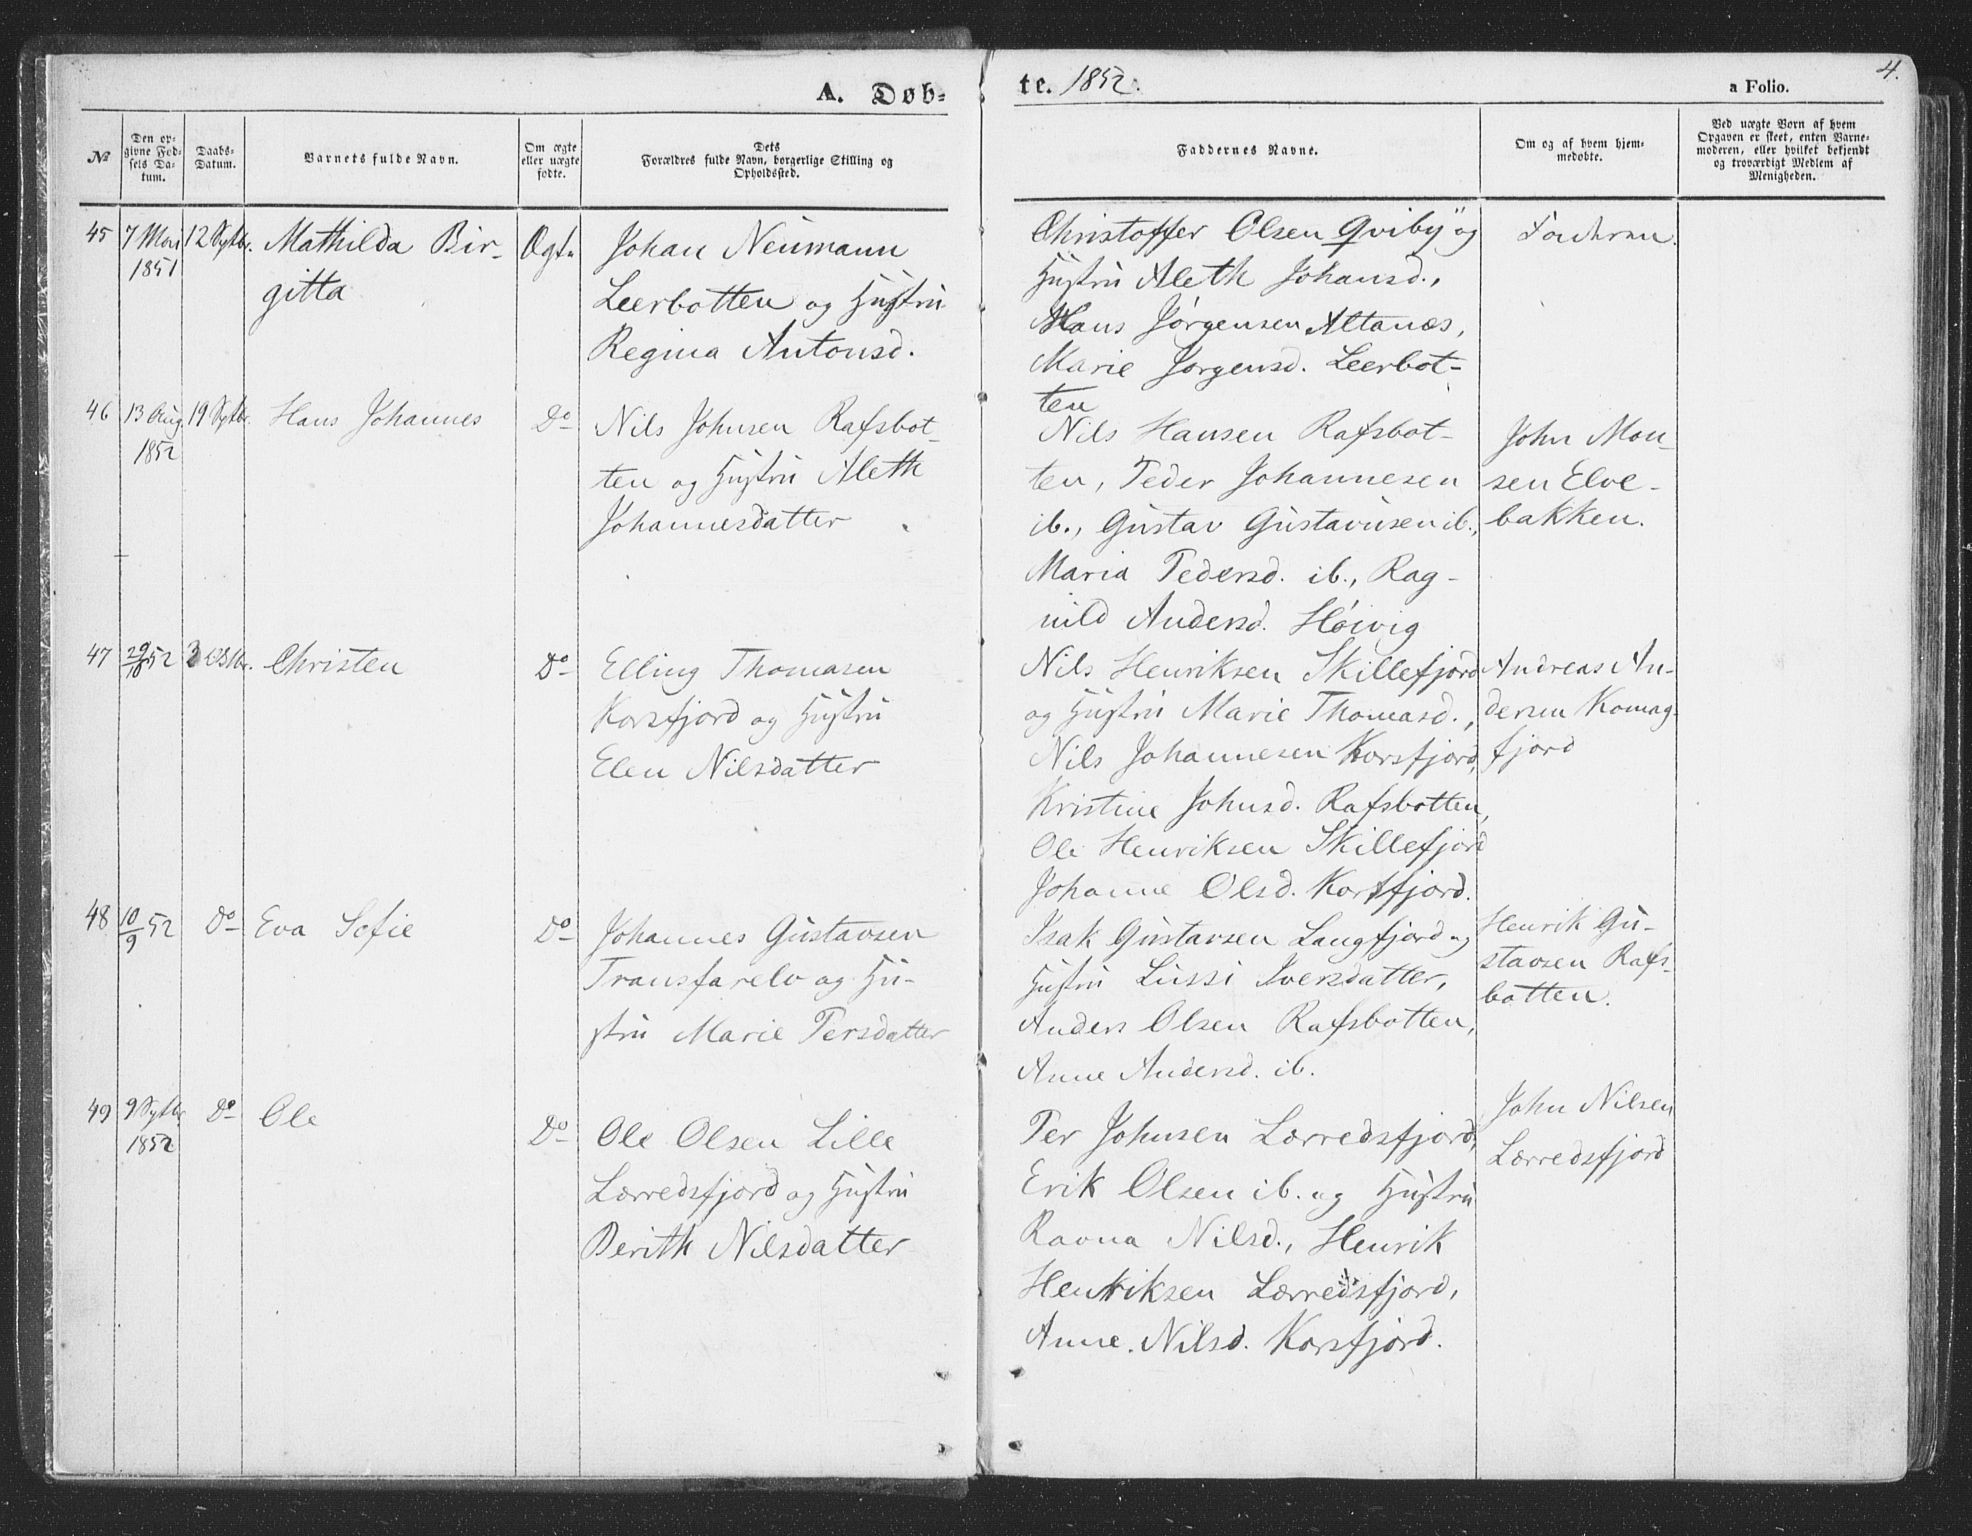 A. Døb-
te. 1852.
a Folio.
4.
№
Den op-
givne Fød-
sels Da-
tum.
Daabs-
Datum.
Barnets fulde Navn.
Om ægte
eller uægte
fødte.
Dets
Forældres fulde Navn, borgerlige Stilling og
Opholdssted.
Faddernes Navne.
Om og af hvem hjem-
medøbte.
Ved uægte Børn af hvem
Opgaven er skeet, enten Barne-
moderen, eller hvilket bekjendt
og troværdigt Medlem af
Menigheden.
45
7 Mai
1851
12 Septbr.
Mathilda Bir-
gitta
Ægte
Johan Neumann
Leerbotten og Hustru
Regina Antonsd.
Christoffer Olsen Qviby og
Hustru Aleth Johansd.,
Hans Jørgensen Altanæs,
Marie Jørgensd. Leerbot-
ten
46
13 Aug
1852
19 Septbr.
Hans Johannes
Do
Nils Johnsen Rafsbot-
ten og Hustru Aleth
Johannesdatter
Nils Hansen Rafsbot-
ten, Peder Johannesen
ib., Gustav Gustavusen ib.,
Maria Pedersd. ib., Rag-
nild Andersd. Høivig
John Mon-
sen Elve-
bakken.
47
52
3 Oktbr.
Christen
Do
Elling Thomasen
Korsfjord og Hustru
Elen Nilsdatter
Nils Henriksen Skillefjord
og Hustru Marie Thomasd.,
Nils Johannesen Korsfjord,
Kristine Johnsd. Rafsbotten,
Ole Henriksen Skillefjord
Johanne Olsd. Korsfjord.
Andreas An-
dersen Komag-
fjord
48
10/9 52
Do
Eva Sofie
Do
Johannes Gustavsen
Transfarelv og Hu-
stru Marie Persdatter
Isak Gustavsen Langfjord og
Hustru Lussi Iversdatter,
Anders Olsen Rafsbotten,
Anne Andersd. ib.
Henrik Gu-
stavsen Rafs-
botten.
49
9 Septbr
1852
Do
Ole
Do
Ole Olsen Lille
Lærredsfjord og Hustru
Berith Nilsdatter
Per Johnsen Lærredsfjord,
Erik Olsen ib. og Hustru
Ravna Nilsd., Henrik
Henriksen Lærredsfjord,
Anne Nilsd. Korsfjord.
John Nilsen
Lærredsfjord